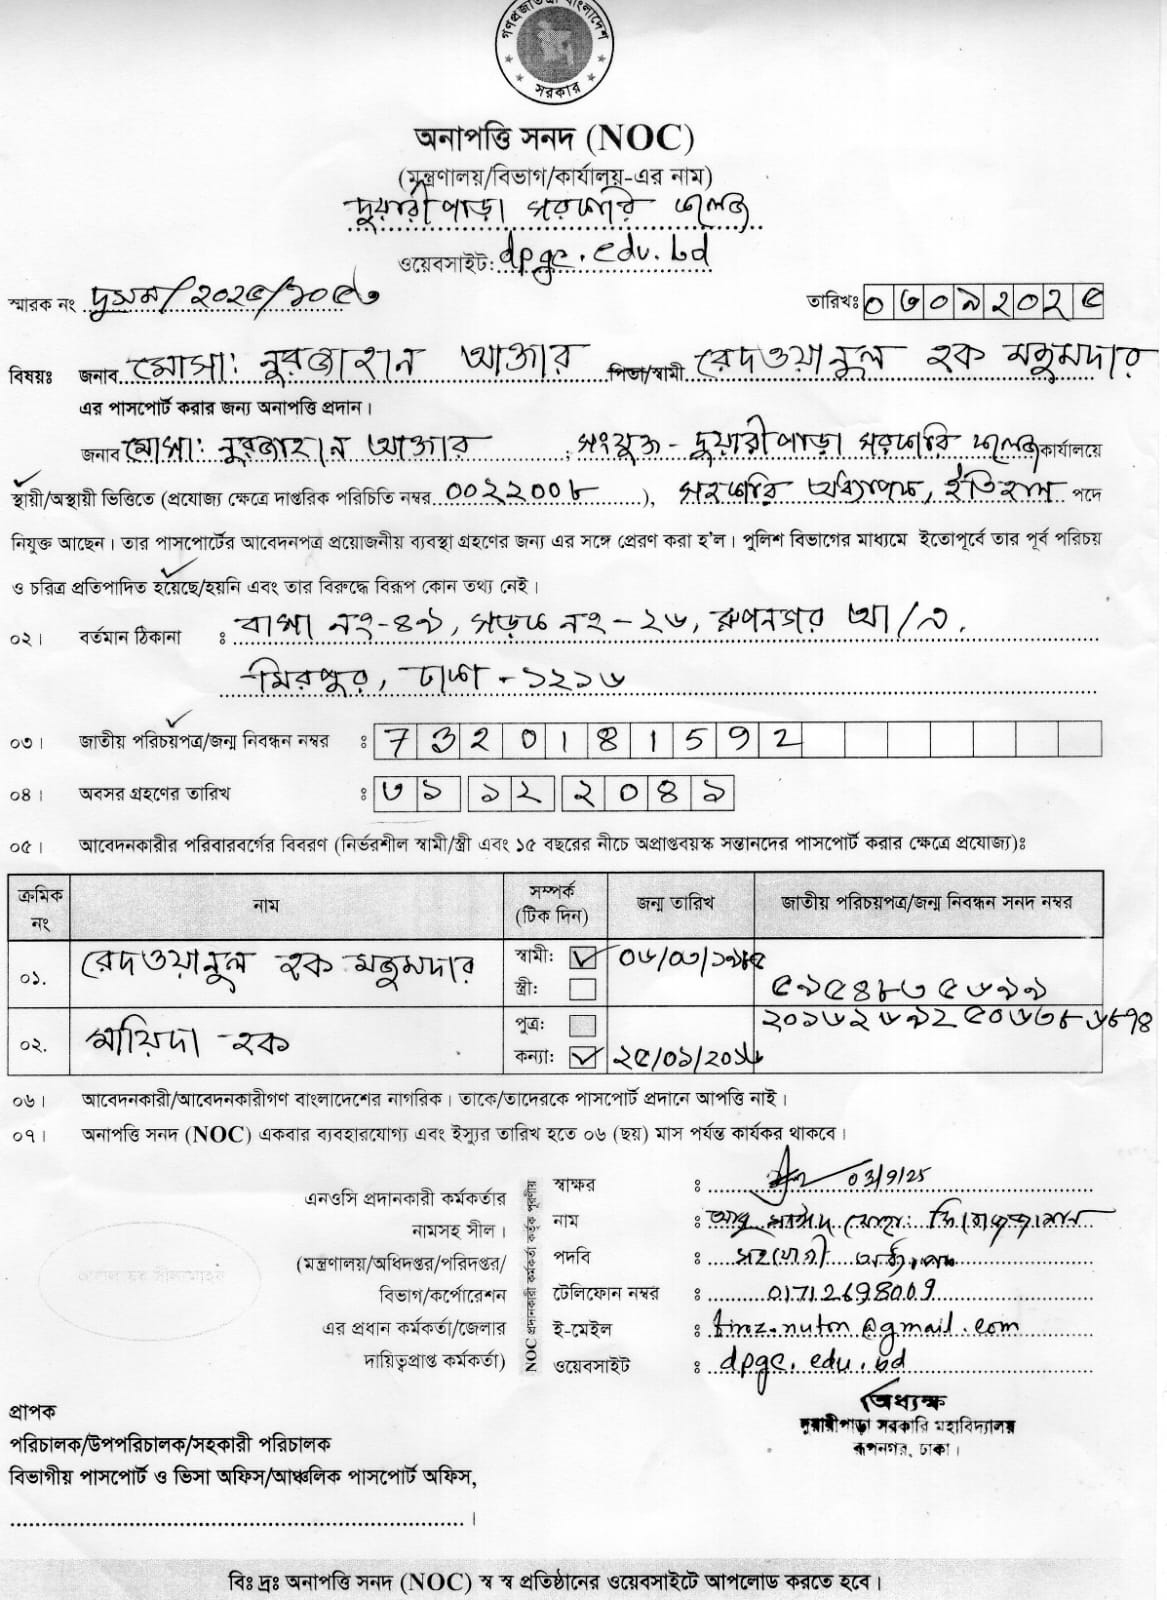 গণপ্রজাতন্ত্রী বাংলাদেশ
সরকার
অনাপত্তি সনদ (NOC)
(মন্ত্রণালয়/বিভাগ/কার্যালয়-এর নাম)
দুয়ারীপাড়া সরকারি কলেজ
ওয়েবসাইট: dpgc.edu.bd
স্মারক নং দুসম/২০২৫/১০৫৩ তারিখঃ ০৩০৯২০২৫
বিষয়ঃ জনাব মোসা: নুরজাহান আক্তার পিতা/স্বামী রেদওয়ানুল হক মজুমদার
এর পাসপোর্ট করার জন্য অনাপত্তি প্রদান।
জনাব মোসা: নুরজাহান আক্তার, সংযুক্ত - দুয়ারীপাড়া সরকারি কলেজ কার্যালয়ে
স্থায়ী/অস্থায়ী ভিত্তিতে (প্রযোজ্য ক্ষেত্রে দাপ্তরিক পরিচিতি নম্বর ০০২২০০৮), সহকারি অধ্যাপক, ইতিহাস পদে
নিযুক্ত আছেন। তার পাসপোর্টের আবেদনপত্র প্রয়োজনীয় ব্যবস্থা গ্রহণের জন্য এর সঙ্গে প্রেরণ করা হ'ল। পুলিশ বিভাগের মাধ্যমে ইতোপূর্বে তার পূর্ব পরিচয়
ও চরিত্র প্রতিপাদিত হয়েছে/হয়নি এবং তার বিরুদ্ধে বিরূপ কোন তথ্য নেই।
০২। বর্তমান ঠিকানা ঃ বাসা নং-৪৯, সড়ক নং-২৬, রুপনগর আ/এ,
মিরপুর, ঢাকা-১২১৬
০৩। জাতীয় পরিচয়পত্র/জন্ম নিবন্ধন নম্বর ঃ 7320181592
০৪। অবসর গ্রহণের তারিখ ঃ ৩১ ১২ ২০৪১
০৫। আবেদনকারীর পরিবারবর্গের বিবরণ (নির্ভরশীল স্বামী/স্ত্রী এবং ১৫ বছরের নীচে অপ্রাপ্তবয়স্ক সন্তানদের পাসপোর্ট করার ক্ষেত্রে প্রযোজ্য)ঃ
ক্রমিক নং নাম সম্পর্ক (টিক দিন) জন্ম তারিখ জাতীয় পরিচয়পত্র/জন্ম নিবন্ধন সনদ নম্বর
০১. রেদওয়ানুল হক মজুমদার স্বামী: ✓ ০৬/০৩/১৯৮৫ ৫৯৫৪৮৩৫৬৯৯
স্ত্রী:
০২. মায়িদা হক পুত্র:
কন্যা: ✓ ২৫/০১/২০১৬
০৬। আবেদনকারী/আবেদনকারীগণ বাংলাদেশের নাগরিক। তাকে/তাদেরকে পাসপোর্ট প্রদানে আপত্তি নাই।
০৭। অনাপত্তি সনদ (NOC) একবার ব্যবহারযোগ্য এবং ইস্যুর তারিখ হতে ০৬ (ছয়) মাস পর্যন্ত কার্যকর থাকবে।
এনওসি প্রদানকারী কর্মকর্তার
নামসহ সীল।
(মন্ত্রণালয়/অধিদপ্তর/পরিদপ্তর/
বিভাগ/কর্পোরেশন
এর প্রধান কর্মকর্তা/জেলার
দায়িত্বপ্রাপ্ত কর্মকর্তা)
NOC প্রদানকারী কর্মকর্তা কর্তৃক পূরণীয়
স্বাক্ষর ঃ 03/9/25
নাম ঃ আবু সাঈদ মোহা: ফিরোজজ্জামান
পদবি ঃ সহযোগী অধ্যাপক
টেলিফোন নম্বর ঃ 01712698009
ই-মেইল ঃ firoz.nuton@gmail.com
ওয়েবসাইট ঃ dpgc.edu.bd
অধ্যক্ষ
দুয়ারীপাড়া সরকারি মহাবিদ্যালয়
রূপনগর, ঢাকা।
প্রাপক
পরিচালক/উপপরিচালক/সহকারী পরিচালক
বিভাগীয় পাসপোর্ট ও ভিসা অফিস/আঞ্চলিক পাসপোর্ট অফিস,
বিঃ দ্রঃ অনাপত্তি সনদ (NOC) স্ব স্ব প্রতিষ্ঠানের ওয়েবসাইটে আপলোড করতে হবে।